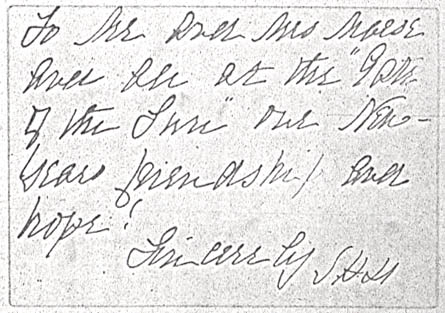 To Mr and Mrs Morse
and all at the "Gate
of the Sun" our New-
Years friendship and
hope!
Sincerely SHH